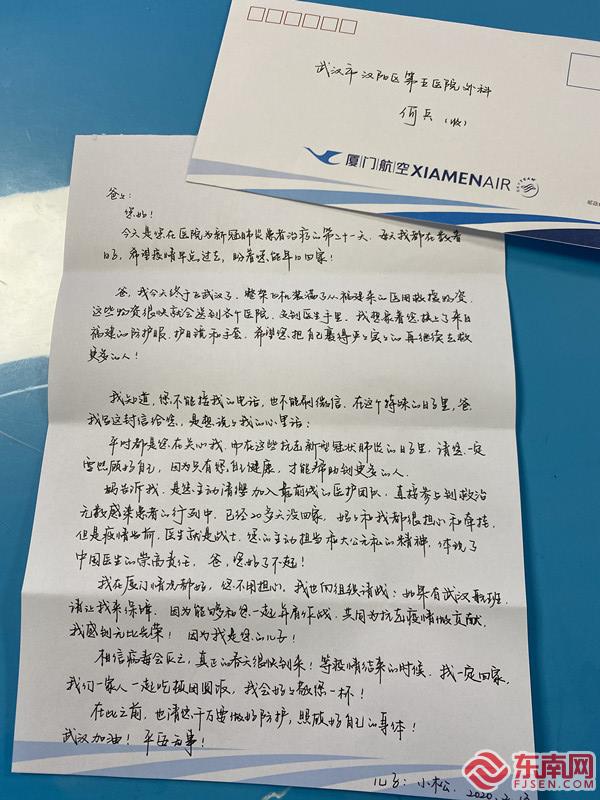 武汉市汉阳区第五医院外科
何兵（收）
厦门航空 XIAMENAIR
SKYTEAM
爸爸：
您好！
今天是您在医院为新冠肺炎患者治疗的第二十一天，每天我都在数着
日子，希望疫情早点过去，盼着您能早日回家！
爸，我今天终于飞武汉了，整架飞机装满了从福建来的医用救援物资，
这些物资很快就会送到各个医院，交到医生手里。我想象着您换上了来自
福建的防护服、护目镜和手套，希望您把自己裹得严严实实的再继续去救
更多的人！
我知道，您不能接我的电话，也不能刷微信，在这个特殊的日子里，爸，
我写这封信给您，是想说说我的心里话：
平时都是您在关心我，而在这些抗击新型冠状肺炎的日子里，请您一定
要照顾好自己，因为只有您自己健康，才能帮助到更多的人。
妈告诉我，是您主动请缨加入最前线的医护团队，直接参与到救治
无数感染患者的行列中，已经20多天没回家，妈妈和我都很担心和牵挂，
但是疫情当前，医生就是战士，您的主动担当和大公无私的精神，体现了
中国医生的崇高责任，爸，您真了不起！
我在厦门情况都好，您不用担心，我也向组织请战：如果有武汉航班，
请让我来保障，因为能够和您一起并肩作战，共同为抗击疫情做贡献，
我感到无比光荣！因为我是您的儿子！
相信病毒会灭亡，真正的春天很快到来！等疫情结束的时候，我一定回家，
我们一家人一起吃顿团圆饭，我会好好敬您一杯！
在此之前，也请您千万要做好防护，照顾好自己的身体！
武汉加油！平安无事！
儿子：小松
2020.2.13
东南网
FJSEN.COM